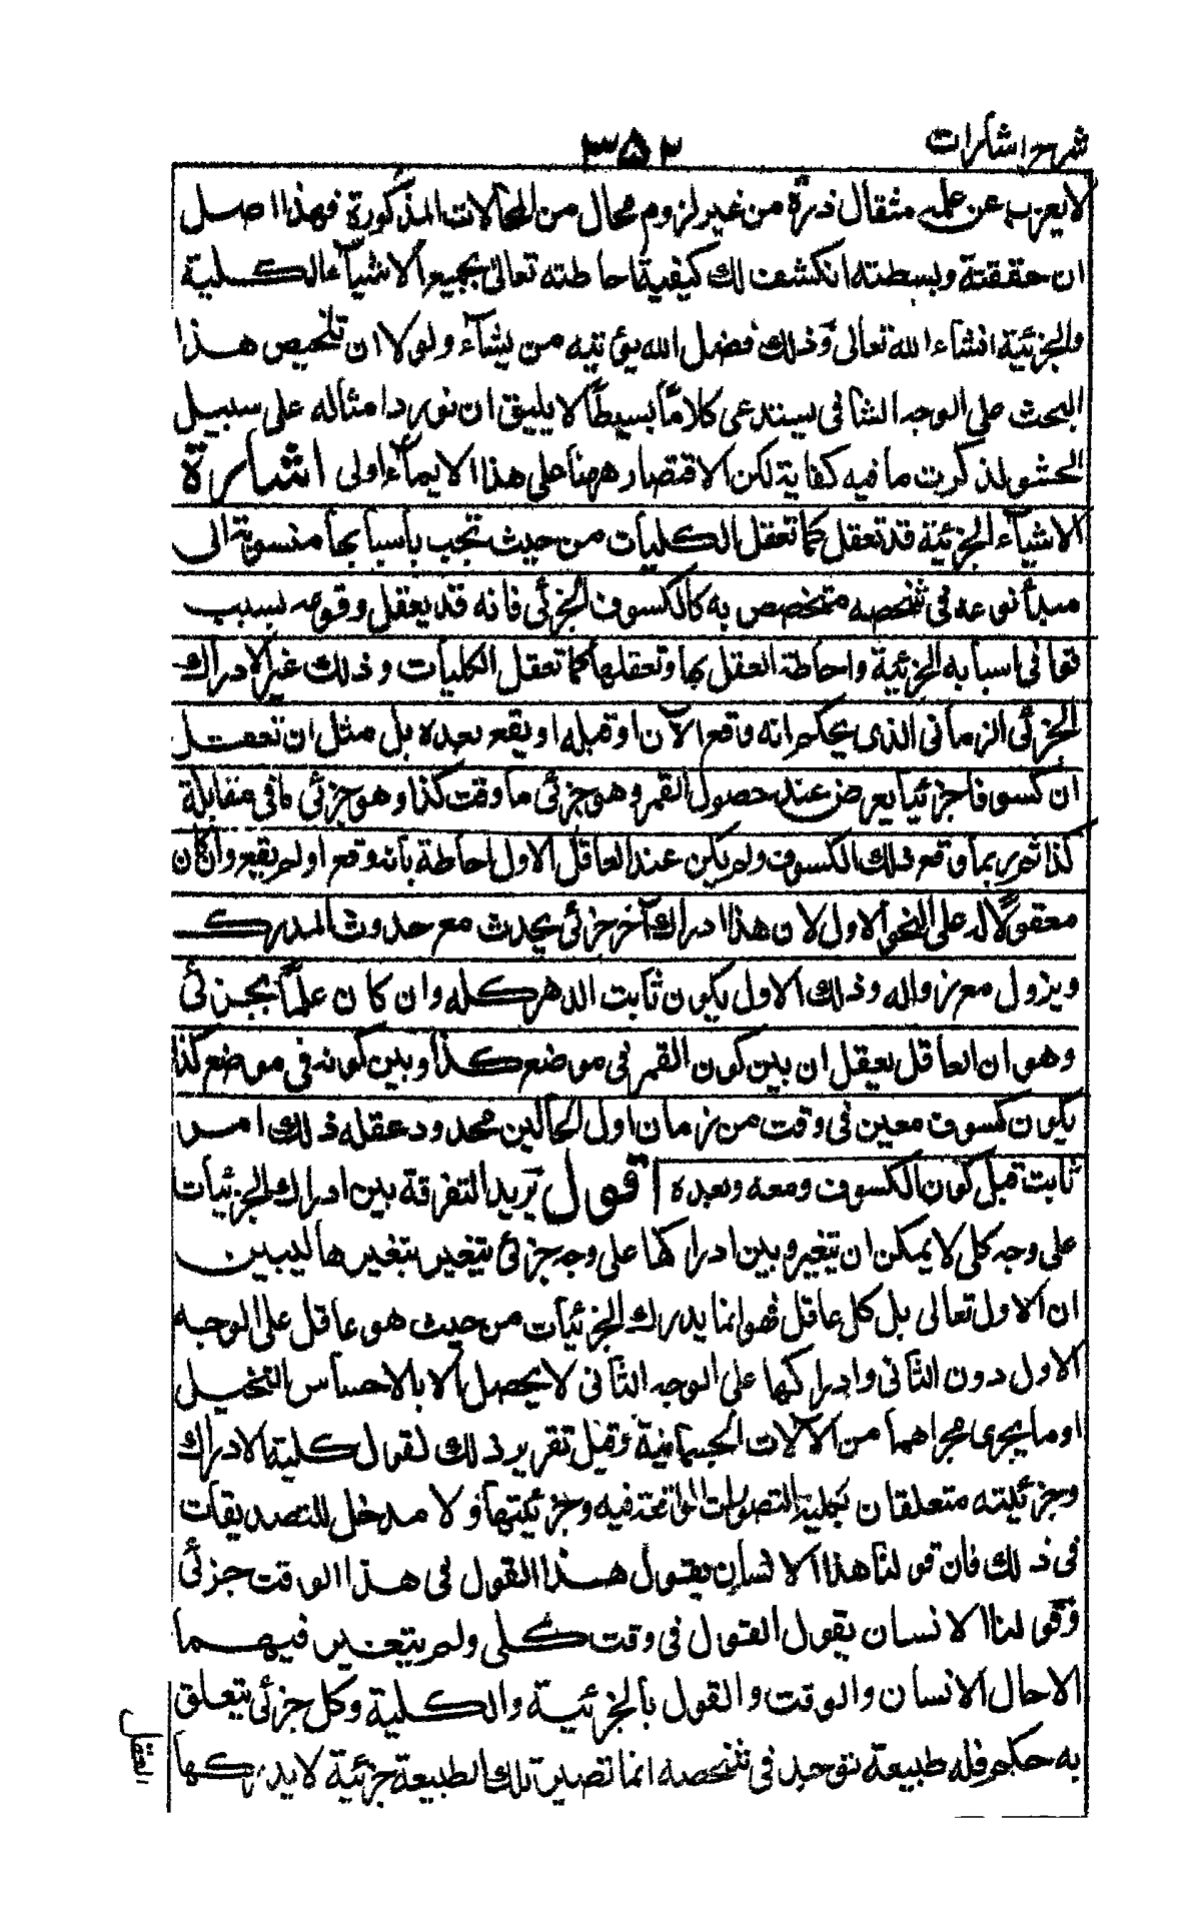 شرح اشارات
٣٥٢
لا يعزب عن علمه مثقال ذرة من غير لزوم محال من المحالات المذكورة فهذا اصل
ان حققته وبسطته انكشف لك كيفية احاطته تعالى بجميع الاشياء الكلية
والجزئية انشاء الله تعالى وذلك فضل الله يؤتيه من يشاء ولولا ان تلخيص هذا
البحث على الوجه الشافى يستدعى كلاما بسيطا لا يليق ان نورد امثاله على سبيل
الحشو لذكرت ما فيه كفاية لكن الاقتصار ههنا على هذا الايماء اولى اشارة
الاشياء الجزئية قد تعقل كما تعقل الكليات من حيث تجب باسبابها منسوبة الى
مبدأ نوعه فى شخصه متخصص به كالكسوف الجزئى فانه قد يعقل وقوعه بسبب
توافى اسبابه الجزئية واحاطة العقل بها وتعقلها كما تعقل الكليات وذلك غير الادراك
الجزئى الزمانى الذى يحكم انه وقع الآن او قبله او يقع بعده بل مثل ان تعقل
ان كسوفا جزئيا يعرض عند حصول القمر وهو جزئى ما وقت كذا وهو جزئى ما فى مقابلة
كذا ثم ربما وقع ذلك الكسوف ولم يكن عند العاقل الاول احاطة بانه وقع او لم يقع وان كان
معقولا له على النحو الاول لان هذا ادراك آخر جزئى يحدث مع حدوث المدرك
ويزول مع زواله وذلك الاول يكون ثابت الدهر كله وان كان علما بجزئى
وهو ان العاقل يعقل ان بين كون القمر فى موضع كذا وبين كونه فى موضع كذا
يكون كسوف معين فى وقت من زمان اول الحالين محدود عقله ذلك امر
ثابت قبل كون الكسوف ومعه وبعده اقول يريد التفرقة بين ادراك الجزئيات
على وجه كلى لا يمكن ان يتغير وبين ادراكها على وجه جزئى يتغير بتغيرها ليبين
ان الاول تعالى بل كل عاقل فهو انما يدرك الجزئيات من حيث هو عاقل على الوجه
الاول دون الثانى وادراكها على الوجه الثانى لا يحصل الا بالاحساس التخيل
او ما يجرى مجراهما من الآلات الجسمانية وقبل تقرير ذلك نقول كلية الادراك
وجزئيته متعلقان بكلية التصورات الواقعة فيه وجزئيتها ولا مدخل للتصديقات
فى ذلك فان قولنا هذا الانسان يقول هذا القول فى هذا الوقت جزئى
وقولنا الانسان يقول القول فى وقت كلى ولم يتغير فيهما
الا حال الانسان والوقت والقول بالجزئية والكلية وكل جزئى يتعلق
به حكم فله طبيعة توجد فى شخصه انما تصير تلك الطبيعة جزئية لا يدركها
العقل